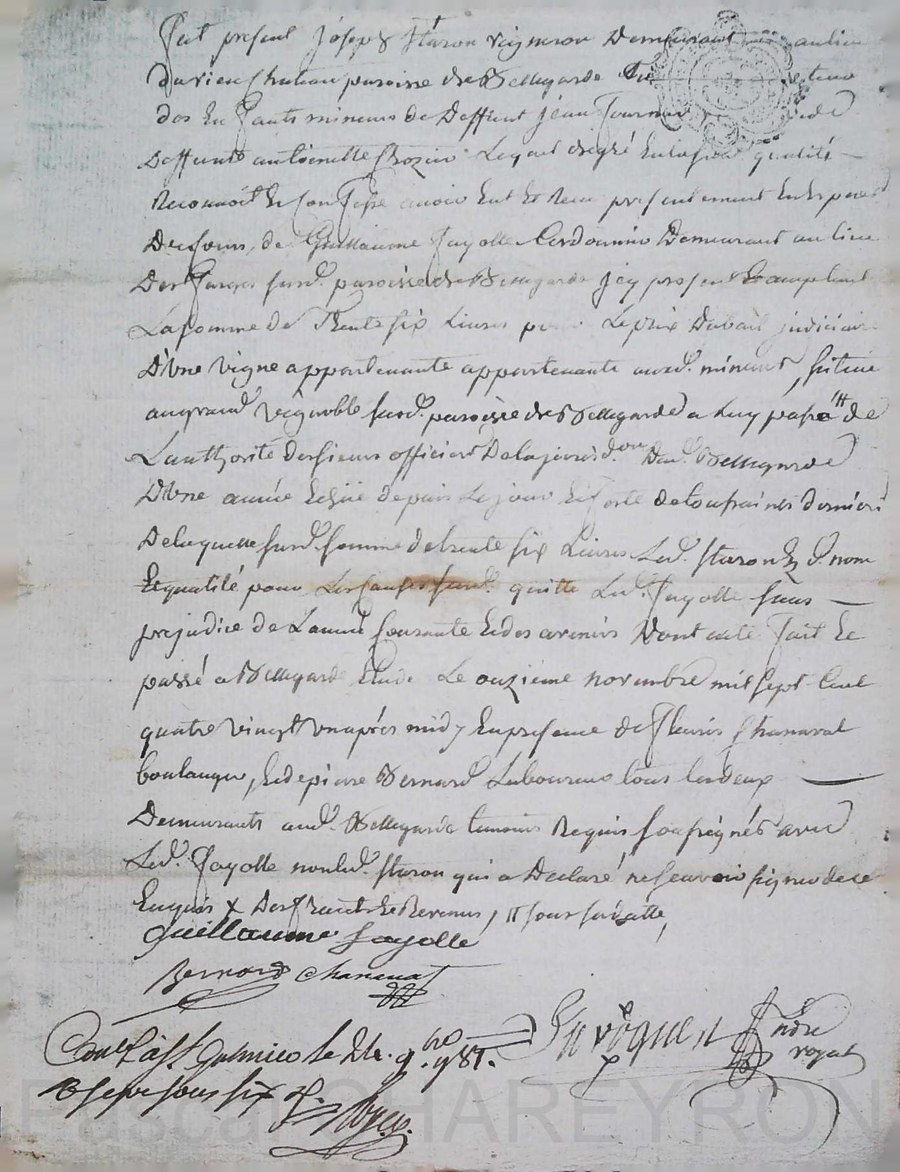 fut present joseph staron vigneron Demeurant au lieu
du vieu chateau paroisse de Bellegarde
des Enfants mineurs de Deffunt jean fournier
Deffunte antoinette lequel de gré en lad. qualité
Reconnoit Et Confesse avoir Eut Et Reçu presentement En Especes
De cours, de Guillaume fayolle Cordonnier Demeurant au lieu
Des farges susd. paroisse de Bellegarde jcy present Et acceptant
La somme de Trente six Livres pour Le prix Du bail judiciaire
D'Une vigne appartenante appartenante auxd. mineurs, scituée
au grand vignoble susd. paroisse de Bellegarde a luy passé de
L'authorité des sieurs officiers De la jurisd.on Dud. Bellegarde
D'Une année Echüe depuis Le jour Et feste de toussaints derniers
De laquelle susd. somme de trente six Livres Led. staron Esd. nom
Et qualité pour Les Causes susd. quitte Led. fayolle sans
prejudice de L'année Courante Et des avenirs Dont acte fait Et
passé a Bellegarde Etude Le onzieme novembre mil sept Cent
quatre vingt Un après midy En presence de fleuris Chanavat
boulanger, Et de pierre Bernard Laboureur tous les deux
Demeurants aud. Bellegarde temoins Requis soussignés avec
Led. fayolle non led. staron qui a Declaré ne sçavoir signer de ce
Enquis
Guillaume fayolle
Bernard Chanavat
Cont. à St Galmier le 24. 9.bre 981.
Reçu sous six d.
Pascal CHAREYRON